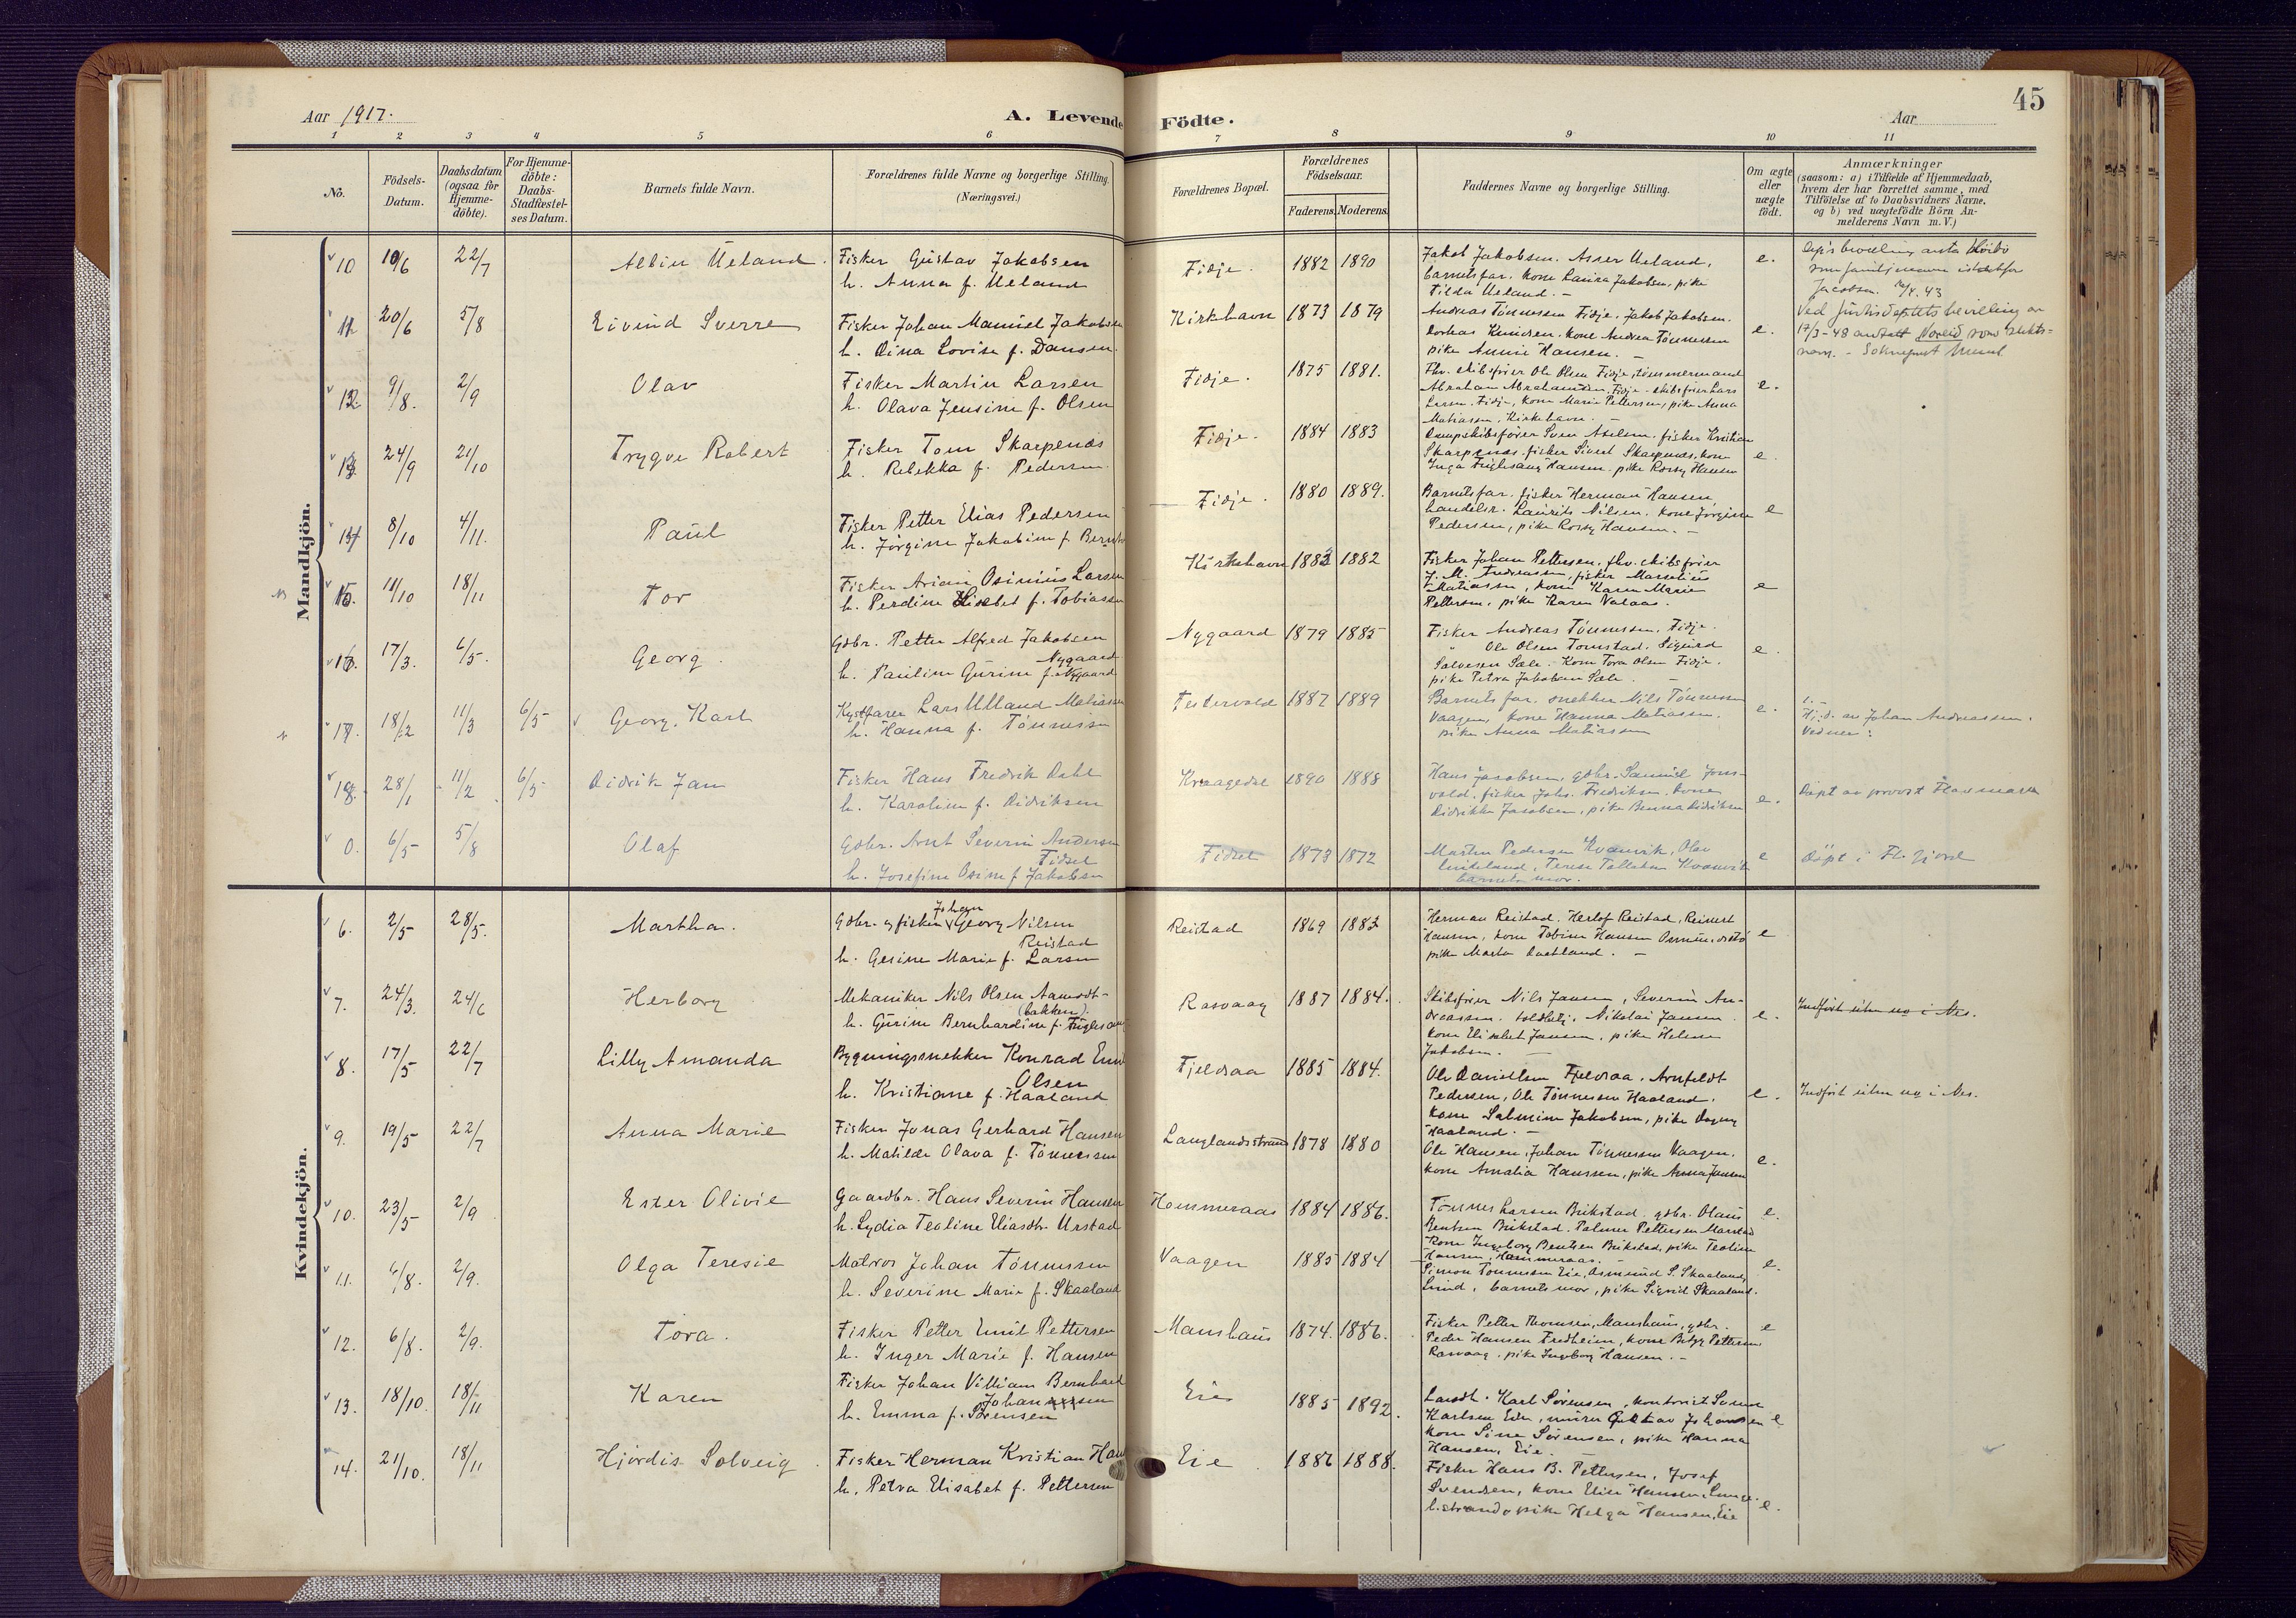 45
Aar 1917.
A. Levende Födte.
Aar
1 2 3 4 5 6 7 8 9 10 11
No.
Födsels-
Datum.
Daabsdatum
(ogsaa for
Hjemme-
döbte).
For Hjemme-
döbte:
Daabs-
Stadfæstel-
ses Datum.
Barnets fulde Navn.
Forældrenes fulde Navne og borgerlige Stilling.
(Næringsvei.)
Forældrenes Bopæl.
Forældrenes
Födselsaar.
Faderens. Moderens.
Faddernes Navne og borgerlige Stilling.
Om ægte
eller
uægte
födt.
Anmærkninger
(saasom: a) i Tilfælde af Hjemmedaab,
hvem der har forrettet samme, med
Tilföielse af to Daabsvidners Navne,
og b) ved uægtefödte Börn An-
melderens Navn m. V.)
Mandkjön.
10 10/6 22/7 Albin Ueland. Fisker Gustav Jakobsen Fidje. 1882 1890 Jakob Jakobsen. Asser Ueland, e.
h. Anna f. Ueland barnets far. Kone Laura Jakobsen, pike
Tilda Ueland. –
som familjenavn istedetfor
Jacobsen. 43
11 20/6 5/8 Eivind Sverre Fisker Johan Manuel Jakobsen Kirkhavn 1873 1879 Andreas Tönnessen Fidje. Jakob Jakobsen. e.
h. Dina Lovise f. Dansen. Dorkas Knudsen. kone Andrea Tönnessen
pike Annie Hansen. –
Ved Justisdeptets bevilling av
17/3-48 antatt Noreid som slekts=
navn. – Sokneprest
12. 9/8. 2/9 Olav Fisker Martin Larsen Fidje. 1875 1881. Fhv. skibsfører Ole Olsen Fidje, tömmermand e.
h. Olava Jensine f. Olsen Abraham Abrahamsen, Fidje. skibsfører Lars
Larsen. Fidje, kone Marie Pettersen, pike Anna
Matiassen, Kirkehavn. –
13. 24/9 21/10 Trygve Robert Fisker Tom Skarpenæs Fidje. 1884 1883 Dampskibsfører Sven Axelsen. fisker Kristian e.
h. Rebekka f. Pedersen. Skarpenæs. fisker Sivert Skarpenæs, kone
Inga Fuglesang Hansen. pike Rossy Hansen
14 8/10 4/11. Paul Fisker Petter Elias Pedersen Fidje. 1880 1889. Barnets far. fisker Herman Hansen e
h. Jörgine Jakobine f. handelsr. Laurits Nilsen. Kone Jörgine
Pedersen, pike Rossy Hansen. –
15. 11/10 18/11 Tor Fisker Osinius Larsen Kirkehavn 1883 1882 Fisker Johan Pettersen, fhv. skibsfører e
h. Perdine Lisebet f. Tobiassen J. M. Andreassen, fisker Marselius
Matiassen, kone Karen Marie
Pettersen, pike Karen Valaas.
16. 17/3. 6/5. Georg. Gdbr. Petter Alfred Jakobsen Nygaard 1879 1885 Fisker Andreas Tönnessen. Fidje. e.
Nygaard " Ole Olsen Tomstad. Sigurd
h. Pauline Gurine f. Nygaard Salvesen Sæle. Kone Tora Olsen Fidje.
pike Petra Jakobsen Sæle. –
17. 18/2 11/3 6/5 Georg. Karl Kystfarer Lars Ulland Matiassen Festervold 1887 1889 Barnets far. snekker Nils Tönnessen e.
h. Hanna f. Tönnessen Vaagen, kone Hanna Matiassen.
pike Anna Matiassen
Hj.d. av Johan Andreassen.
Vidner:
18. 28/1 11/2 6/5 Didrik Jan Fisker Hans Fredrik Dahl Kraagedal 1890 1888 Hans Jacobsen, gdbr. Samuel Jons- e.
h. Karoline f. Didriksen vold. fisker Johs. Fredriksen. kone
Didrikke Jacobsen, pike Benna Didriksen
Döpt av provst
0. 6/5 5/8 Olaf Gdbr. Arnt Severin Andersen Fidsel 1873 1872 Martin Pedersen Kvanvik, Olav e
Fidsel
h. Josefine Osine f. Jakobsen Kvanvik
barnets mor.
Döpt i Fl. fjord
Kvindekjön.
6. 2/5 28/5. Martha. Gdbr. og fisker Johan Georg Nilsen Reistad 1869 1883 Herman Reistad. Herlof Reistad, Reinert e
Reistad Hansen, kone Tobine Hansen
h. Gesine Marie f. Larsen pike Marta –
7. 24/3. 24/6 Herborg Mekaniker Nils Olsen Aamodt- Rasvaag 1887 1884. Skibsfører Nils Jansen, Severin An- e.
(bakken). dreassen. Nikolai Jansen.
h. Gurine Bernhardine f. Fuglesang kone Elisabet Jansen, pike Helene
Jakobsen. –
Indfört uten no i Nes.
8. 17/5 22/7 Lilly Amanda Bygningssnekker Konrad Fjeldsaa 1885 1884. Ole Danielsen Fjeldsaa. Arnfeldt e.
Olsen Pedersen, Ole Tönnessen Haaland.
h. Kristiane f. Haaland Kone Salmine Jakobsen, pike Dagny
Haaland. –
Indfört uten no i Nes.
9. 19/5 22/7 Anna Marie Fisker Jonas Gerhard Hansen Langlandsstrand 1878 1880 Ole Hansen, Johan Tönnessen Vaagen, e.
h. Matilde Olava f. Tönnessen kone Amalia Hanssen, pike Anna Jansen
10. 23/5 2/9 Ester Olivie Gaardbr. Hans Severin Hansen Hommeraas 1884 1886. Tönnes Larsen Birkstad. gdbr. Olaus e.
h. Lydia Teoline Eliasdtr. Urstad Bentsen Birkstad. Palmer Pettersen
Kone Ingeborg Bentsen Birkstad, pike Teoline
Hansen, Hammeraas. –
11. 6/8. 2/9. Olga Teresie Matros Johan Tönnessen Vaagen 1885 1884 Simon Tönnessen Eie, Osmund S. Skaaland, e.
h. Severine Marie f. Skaaland Lund, barnets mor, pike Sigrid Skaaland.
12. 6/8. 2/9. Tora. Fisker Petter Emil Pettersen Manshaus 1874. 1886. Fisker Petter Thomsen, Manshaus, gdbr. e
h. Inger Marie f. Hansen Peder Hansen Fredheim, kone Pettersen
Rasvaag, pike Ingeborg Hansen. –
13. 18/10. 18/11 Karen Fisker Johan Villiam Bernhard Eie 1885 1892. Karl Sørensen, kontorist e
Johan sen Karlsen Eie, murer Gustav Johansen
h. Emma f. Sørensen kone Sine Sørensen, pike Hanna
Hansen, Eie. –
14. 21/10. 18/11 Hjördis Solveig. Fisker Herman Kristian Han Eie 1886 1888. Fisker Hans B. Pettersen, Josef e.
h. Petra Elisabet f. Pettersen Svendsen, kone Elise Hansen,
pike Helga Hansen, Eie